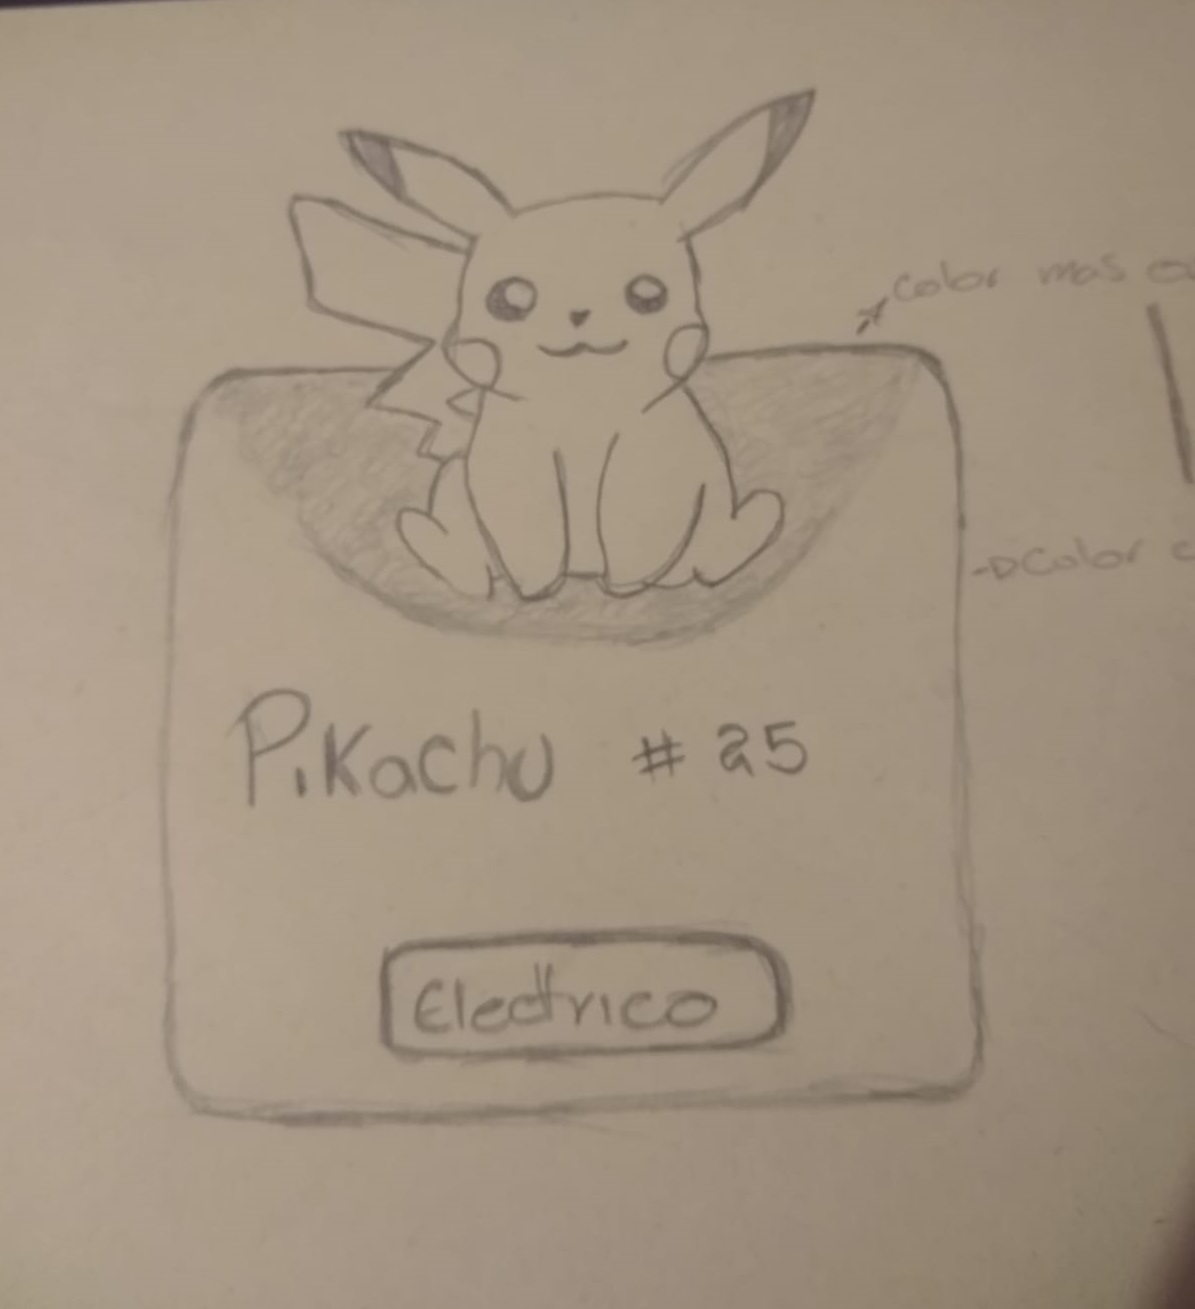 color mas
Color
Pikachu # 25
Electrico